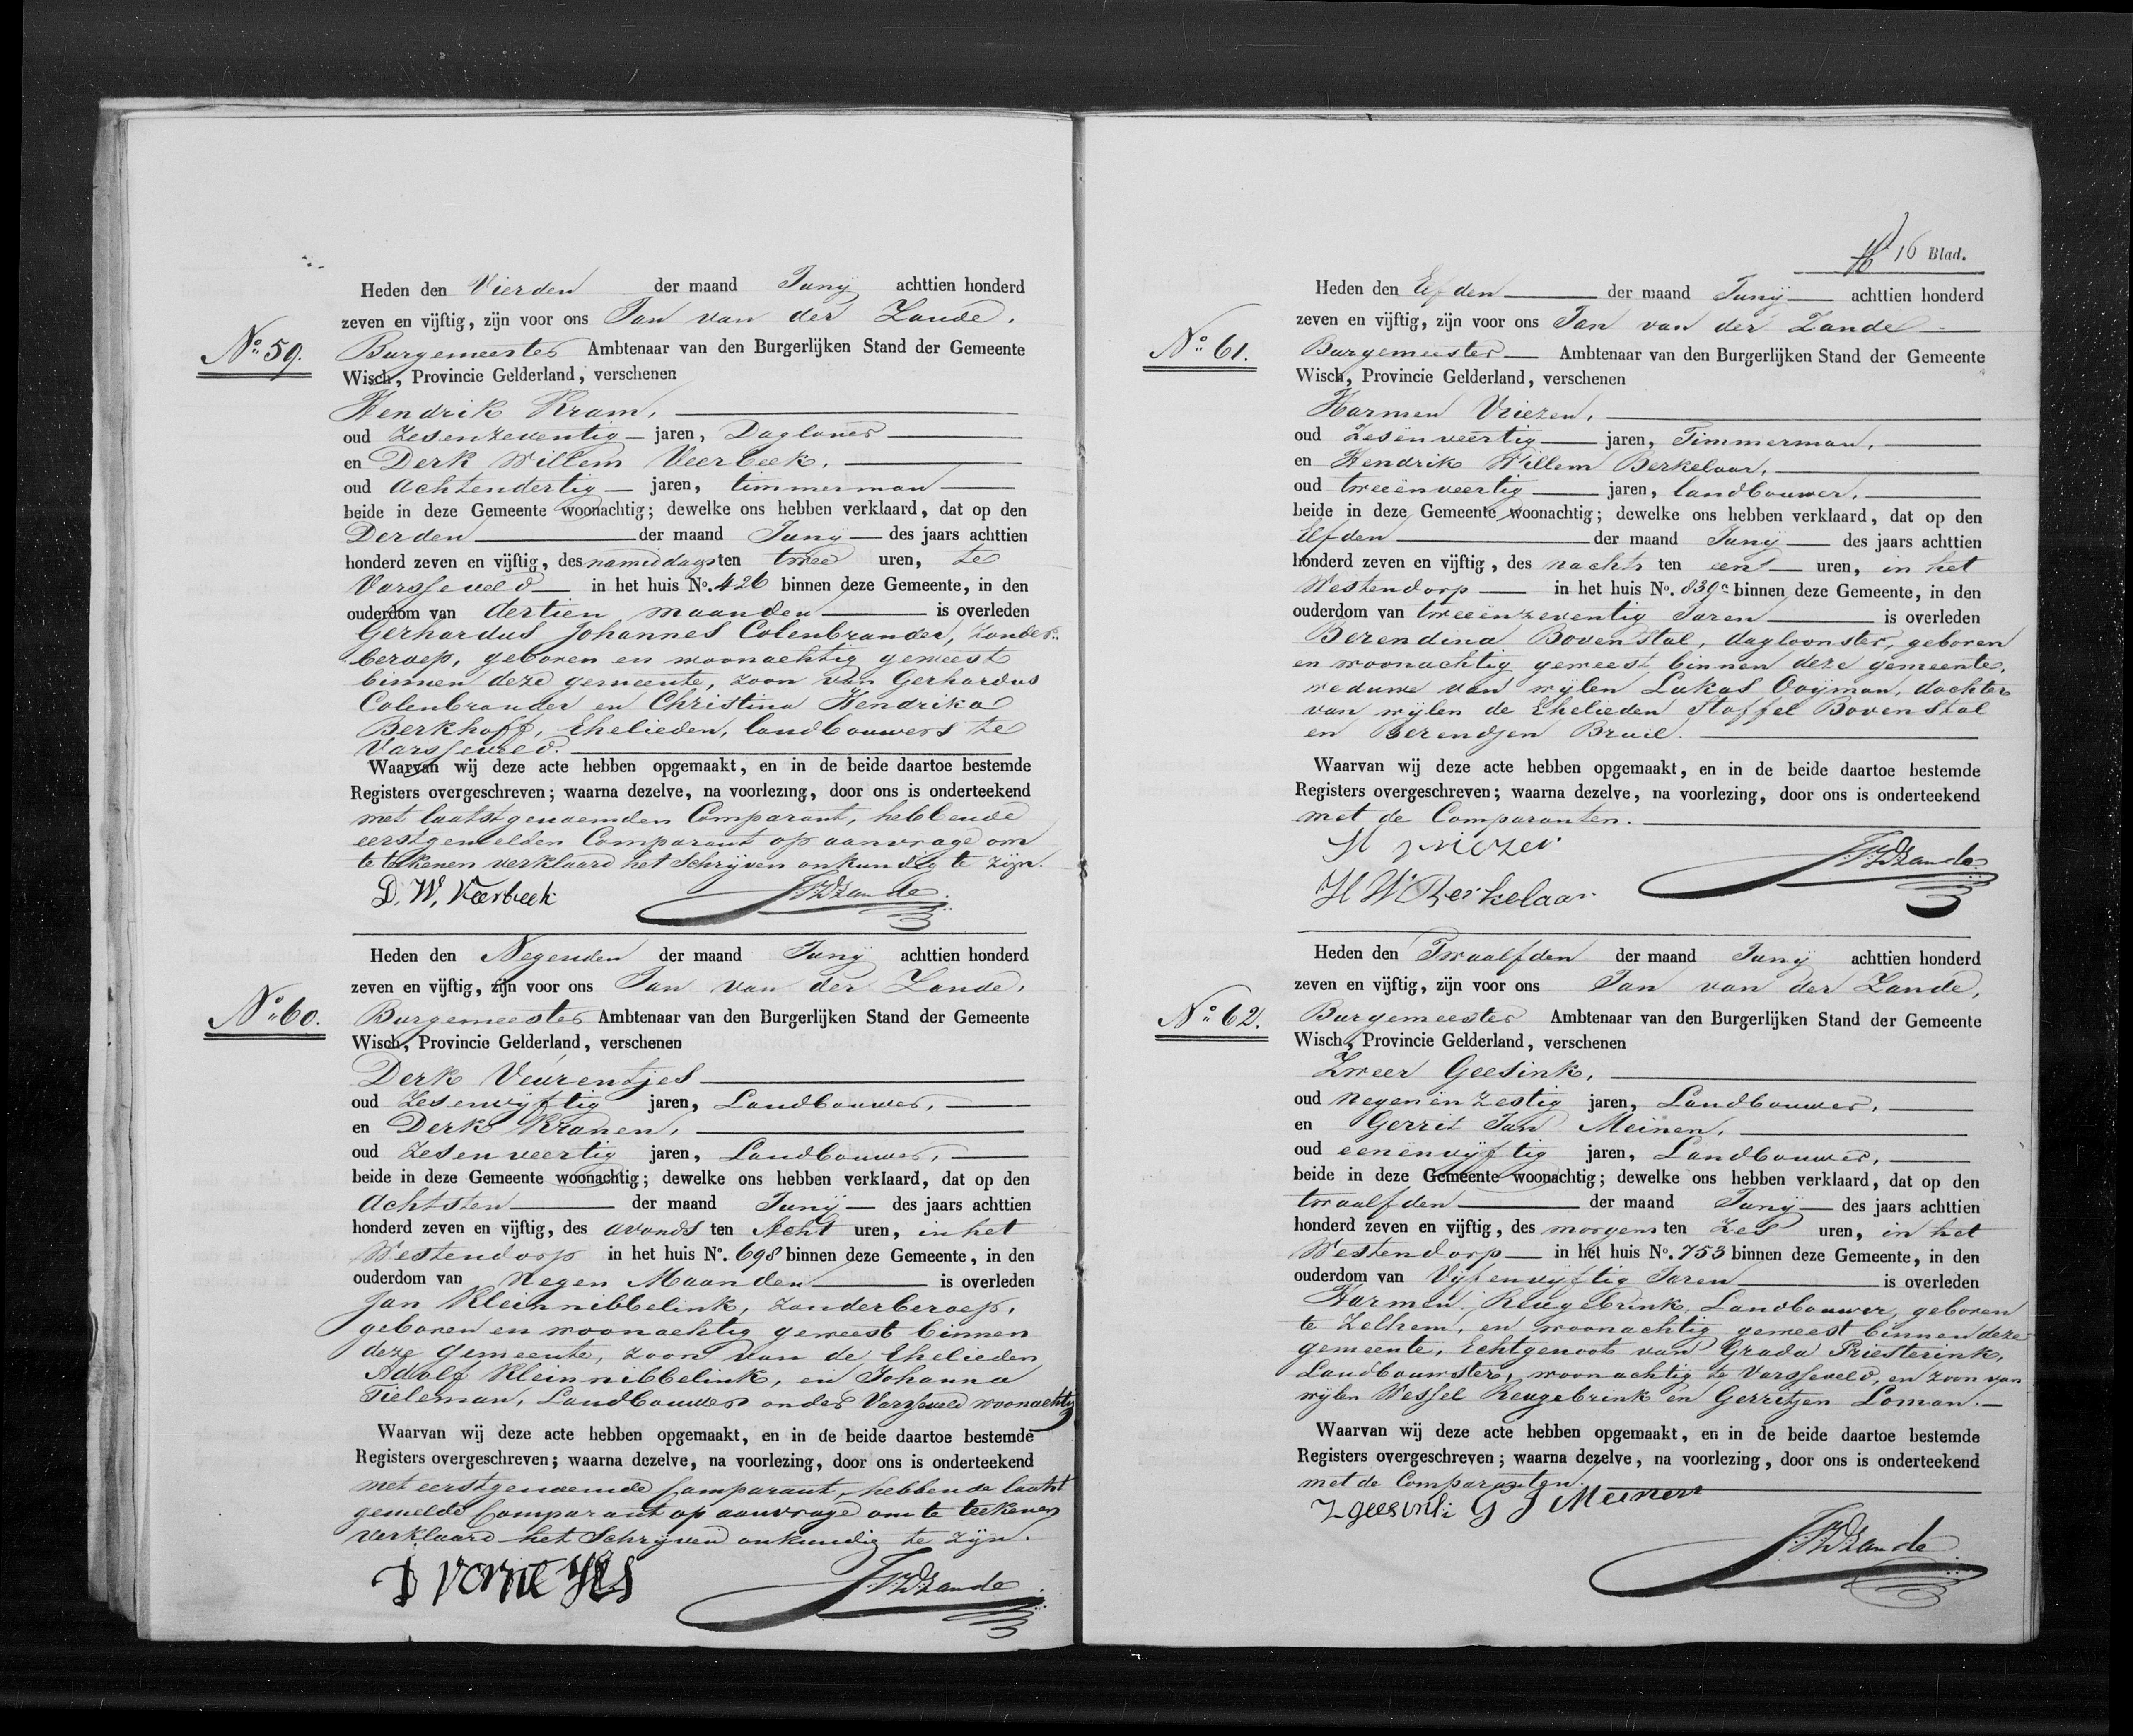 Heden den Vierden der maand Junij achttien honderd
zeven en vijftig, zijn voor ons Jan van der Zande,
No. 59.
Burgemeester Ambtenaar van den Burgerlijken Stand der Gemeente
Wisch, Provincie Gelderland, verschenen
Hendrik Kram,
oud Zesenzeventig jaren, Daglooner
en Derk Willem Veerbeek,
oud Achtendertig jaren, timmerman
beide in deze Gemeente woonachtig; dewelke ons hebben verklaard, dat op den
Derden der maand Junij des jaars achttien
honderd zeven en vijftig, des namiddags ten twee uren, te
Varsseveld in het huis No. 426 binnen deze Gemeente, in den
ouderdom van dertien maanden is overleden
Gerhardus Johannes Colenbrander, zonder
beroep, geboren en woonachtig geweest
binnen deze gemeente, zoon van Gerhardus
Colenbrander en Christina Hendrika
Berkhoff, Ehelieden, landbouwers te
Varsseveld.
Waarvan wij deze acte hebben opgemaakt, en in de beide daartoe bestemde
Registers overgeschreven; waarna dezelve, na voorlezing, door ons is onderteekend
met laatstgenoemden Comparant, hebbende
eerstgemelden Comparant op aanvrage om
te tekenen verklaard het Schrijven onkundig te zijn.
D. W. Veerbeek JVDZande
Heden den Negenden der maand Junij achttien honderd
zeven en vijftig, zijn voor ons Jan van der Zande,
No. 60.
Burgemeester Ambtenaar van den Burgerlijken Stand der Gemeente
Wisch, Provincie Gelderland, verschenen
Derk Veurentjes
oud Zesenvijftig jaren, Landbouwer,
en Derk Kranen,
oud Zesenveertig jaren, Landbouwer,
beide in deze Gemeente woonachtig; dewelke ons hebben verklaard, dat op den
Achtsten der maand Junij des jaars achttien
honderd zeven en vijftig, des avonds ten Acht uren, in het
Westendorp in het huis No. 698 binnen deze Gemeente, in den
ouderdom van Negen Maanden is overleden
Jan Kleinnibbelink, zonder beroep,
geboren en woonachtig geweest binnen
deze gemeente, zoon van de Ehelieden
Adolf Kleinnibbelink, en Johanna
Tieleman, Landbouwers onder Varsseveld woonachtig
Waarvan wij deze acte hebben opgemaakt, en in de beide daartoe bestemde
Registers overgeschreven; waarna dezelve, na voorlezing, door ons is onderteekend
met eerstgenoemde Comparant, hebbende laatst
gemelde Comparant op aanvrage om te teekenen
verklaard het Schrijven onkundig te zijn.
JVDZande
16 Blad.
Heden den Elfden der maand Junij achttien honderd
zeven en vijftig, zijn voor ons Jan van der Zande
No. 61.
Burgemeester Ambtenaar van den Burgerlijken Stand der Gemeente
Wisch, Provincie Gelderland, verschenen
Harmen Vriezen,
oud Zesenveertig jaren, Timmerman,
en Hendrik Willem Berkelaar,
oud tweeënveertig jaren, landbouwer,
beide in deze Gemeente woonachtig; dewelke ons hebben verklaard, dat op den
Elfden der maand Junij des jaars achttien
honderd zeven en vijftig, des nachts ten een uren, in het
Westendorp in het huis No. 839a binnen deze Gemeente, in den
ouderdom van tweeënzeventig Jaren is overleden
Berendina Bovenstal, dagloonster, geboren
en woonachtig geweest binnen deze gemeente,
weduwe van wijlen Lukas Ooijman, dochter
van wijlen de Ehelieden Staffel Bovenstal
en Berendjen Bruil.
Waarvan wij deze acte hebben opgemaakt, en in de beide daartoe bestemde
Registers overgeschreven; waarna dezelve, na voorlezing, door ons is onderteekend
met de Comparanten.
H vriezen JVDZande
H W Berkelaar
Heden den Twaalfden der maand Junij achttien honderd
zeven en vijftig, zijn voor ons Jan van der Zande,
No. 62.
Burgemeester Ambtenaar van den Burgerlijken Stand der Gemeente
Wisch, Provincie Gelderland, verschenen
Zweer Geesink,
oud negenënzestig jaren, Landbouwer,
en Gerrit Jan Meinen,
oud eenenvijftig jaren, Landbouwer,
beide in deze Gemeente woonachtig; dewelke ons hebben verklaard, dat op den
twaalfden der maand Junij des jaars achttien
honderd zeven en vijftig, des morgens ten Zes uren, in het
Westendorp in het huis No. 753 binnen deze Gemeente, in den
ouderdom van Vijfenvijftig Jaren is overleden
Harmen Reugebrink, Landbouwer, geboren
te Zelhem, en woonachtig geweest binnen deze
gemeente, Echtgenoot van Grada Priesterink,
Landbouwster, woonachtig te Varsseveld, en zoon van
wijlen Wessel Reugebrink en Gerritjen Loman.
Waarvan wij deze acte hebben opgemaakt, en in de beide daartoe bestemde
Registers overgeschreven; waarna dezelve, na voorlezing, door ons is onderteekend
met de Comparanten.
Z geesink G J Meinen
JVDZande